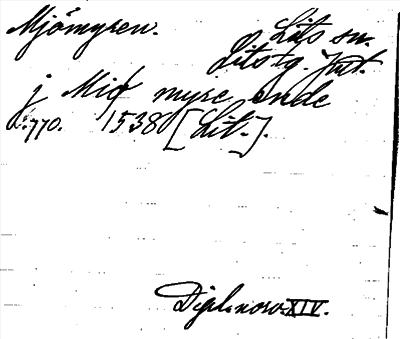 Mjömyren. Lits sn.
Lits tg. Jmt.
j Miö myre ende
s. 770. 1538 [Lit.].
Dipl. norv. XIV.